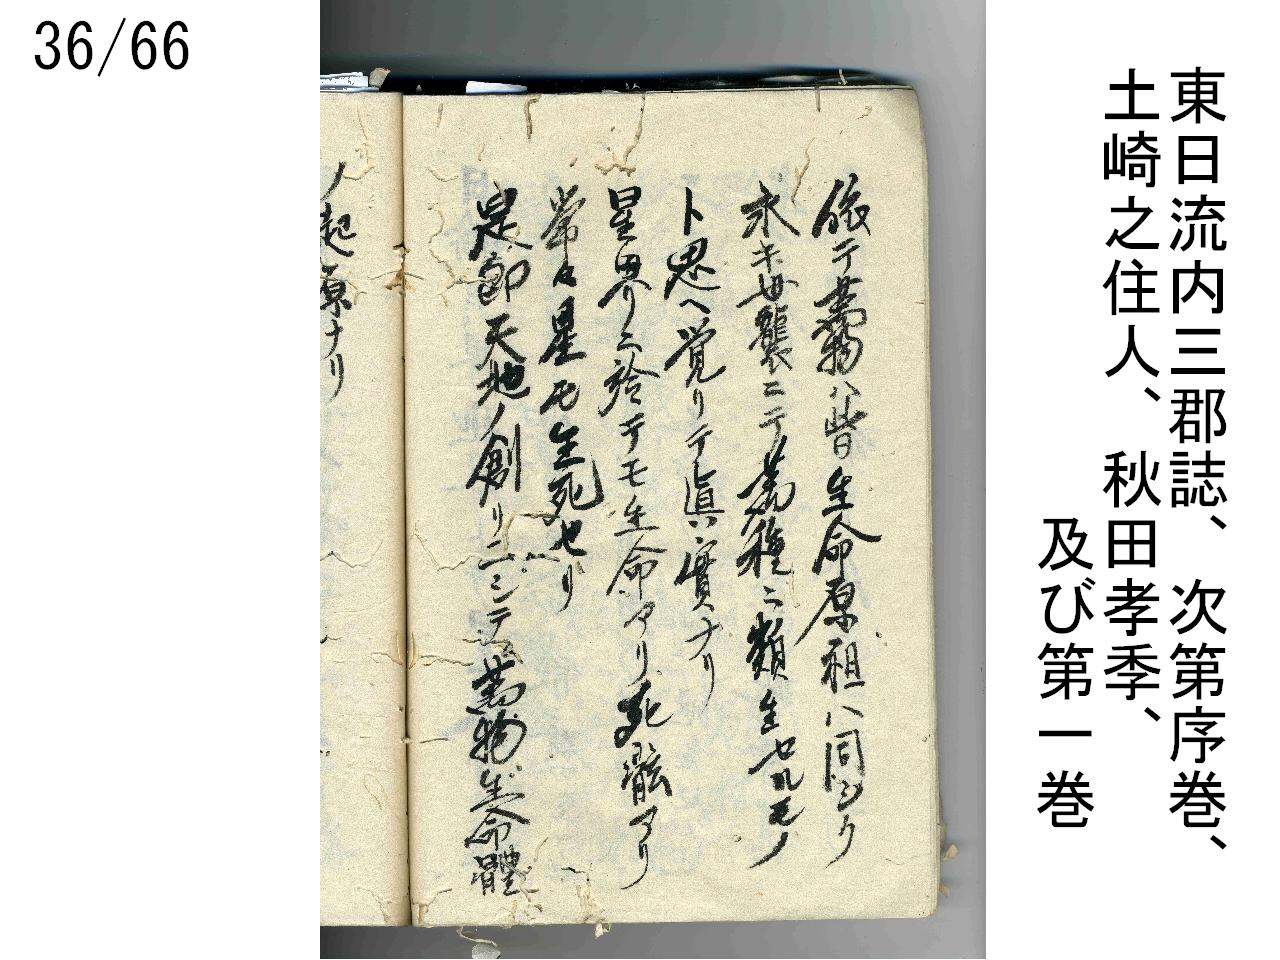 36/66
東日流内三郡誌、次第序巻、
土崎之住人、秋田孝季、
及び第一巻
依テ萬物ハ皆生命原祖ハ同じク
永キ世襲ニテ萬種ニ類生セルモノ
ト思ヘ覚リテ眞ハ實ナリ
星界ニ於テモ生命アリ死骸アリ
常々星モ生死セリ
是即天地ノ創リニシテ萬物生命體
ノ起原ナリ